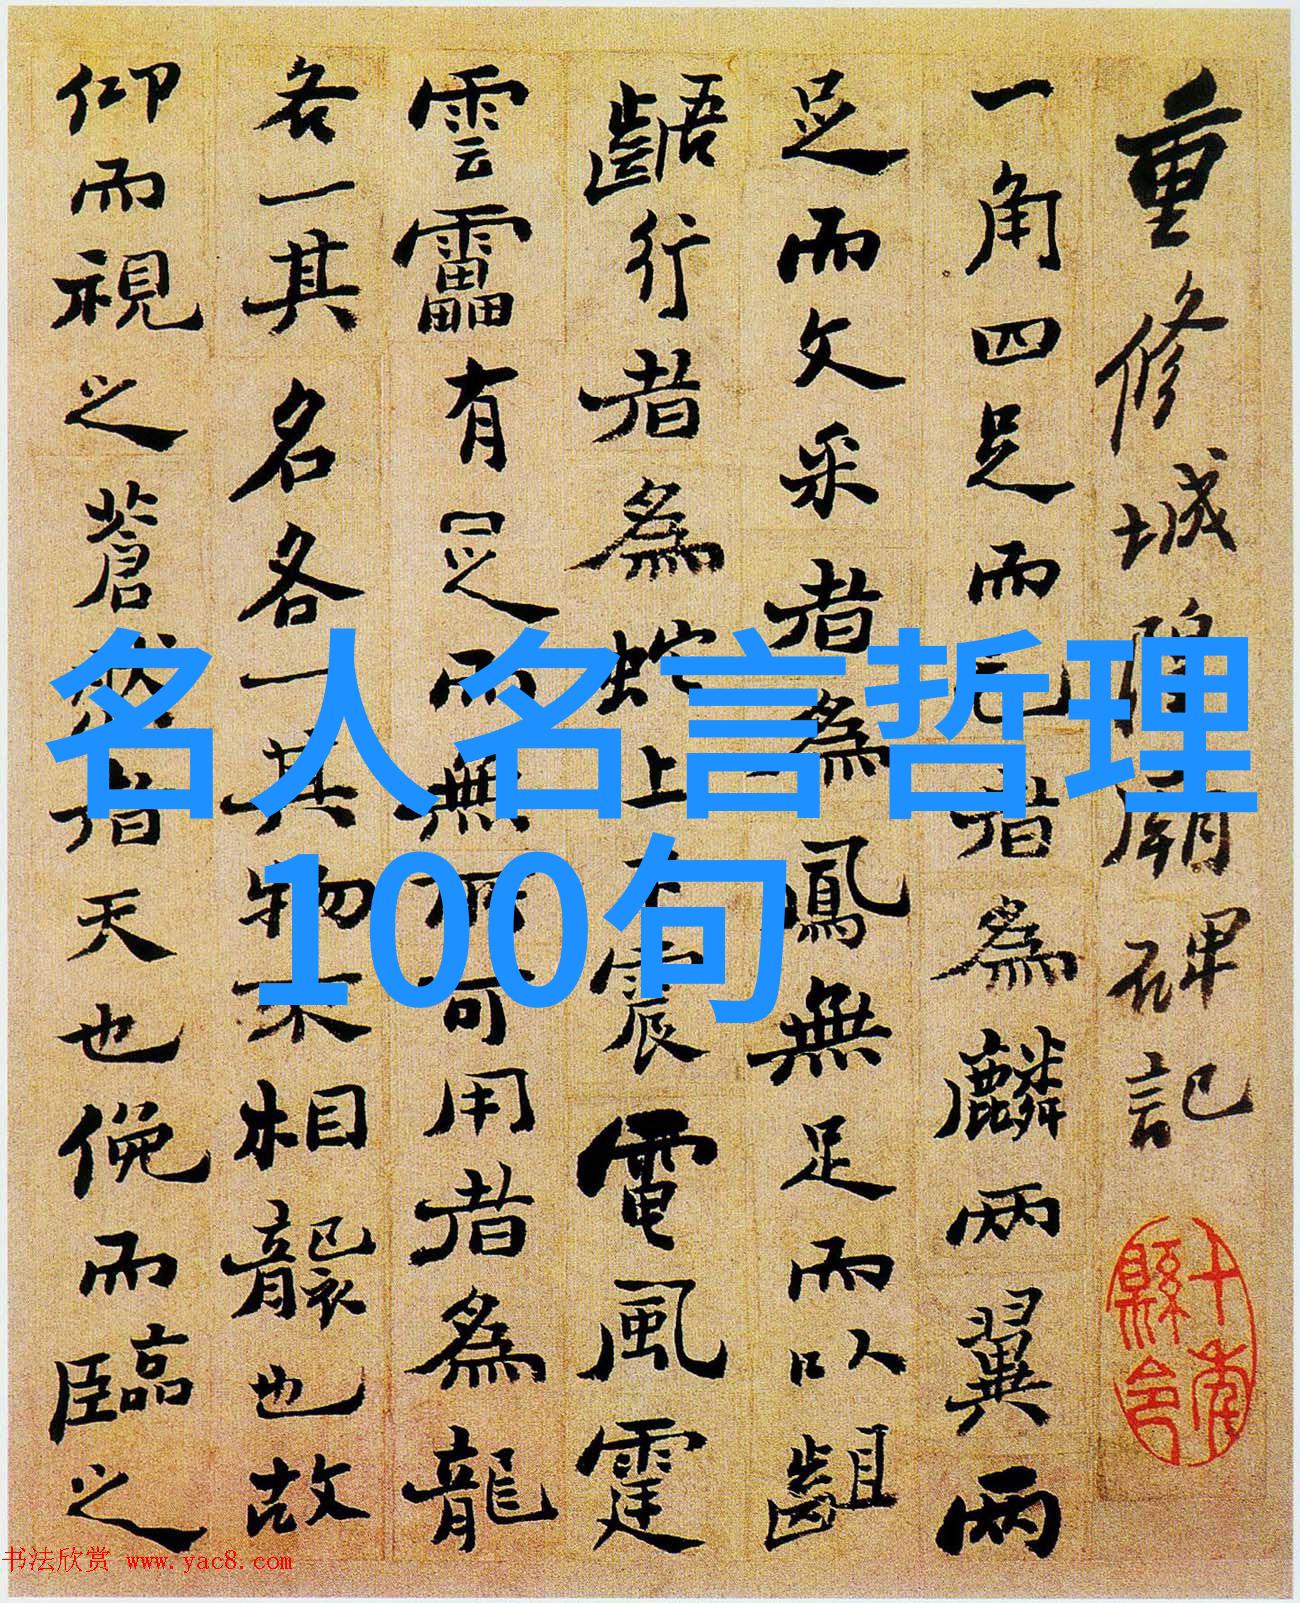 重修城隍廟碑記
一角四足而毛者為麟兩翼兩
足而文采者為鳳無足而以齟
齬行者為蛇上下震電風霆
雲靁有足而無所可用者為龍
各一其名各一其物不相襲也故
仰而視之蒼然者天也俛而臨之
十南縣令
名人名言哲理
100句
书法欣赏 www.yac8.com